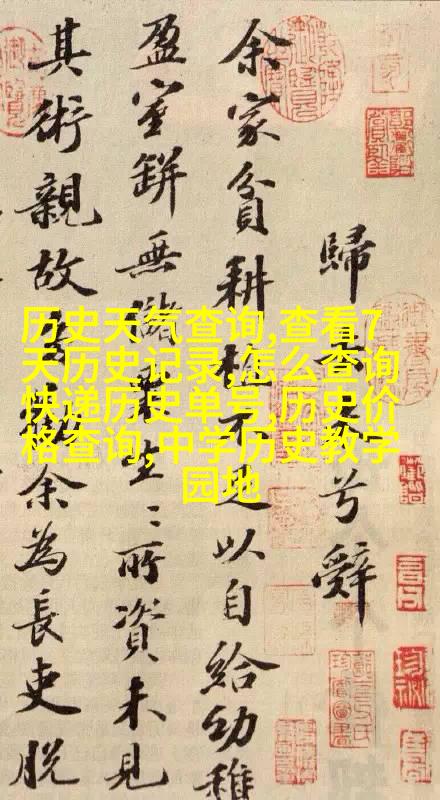 歸去來兮辭
余家貧耕植不足以自給幼稚
盈室缾無儲粟生〻所資未見
其術親故多勸余為長吏脫
历史天气查询,查看7
天历史记录,怎么查询
快递历史单号,历史价
格查询,中学历史教学
园地